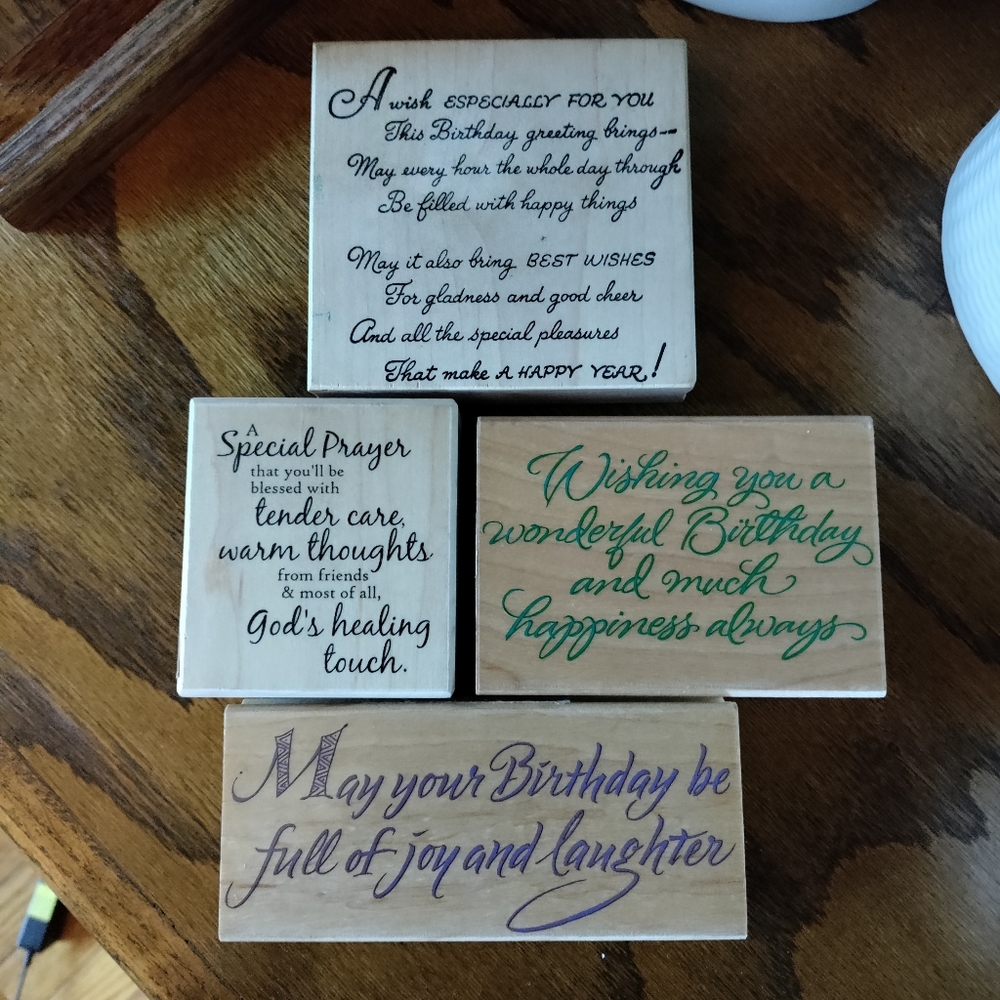 A wish ESPECIALLY FOR YOU
This Birthday greeting brings--
May every hour the whole day through
Be filled with happy things
May it also bring BEST WISHES
For gladness and good cheer
And all the special pleasures
That make A HAPPY YEAR!
A
Special Prayer
that you'll be
blessed with
tender care,
warm thoughts
from friends
& most of all,
God's healing
touch.
Wishing you a
wonderful Birthday
and much
happiness always
May your Birthday be
full of joy and laughter